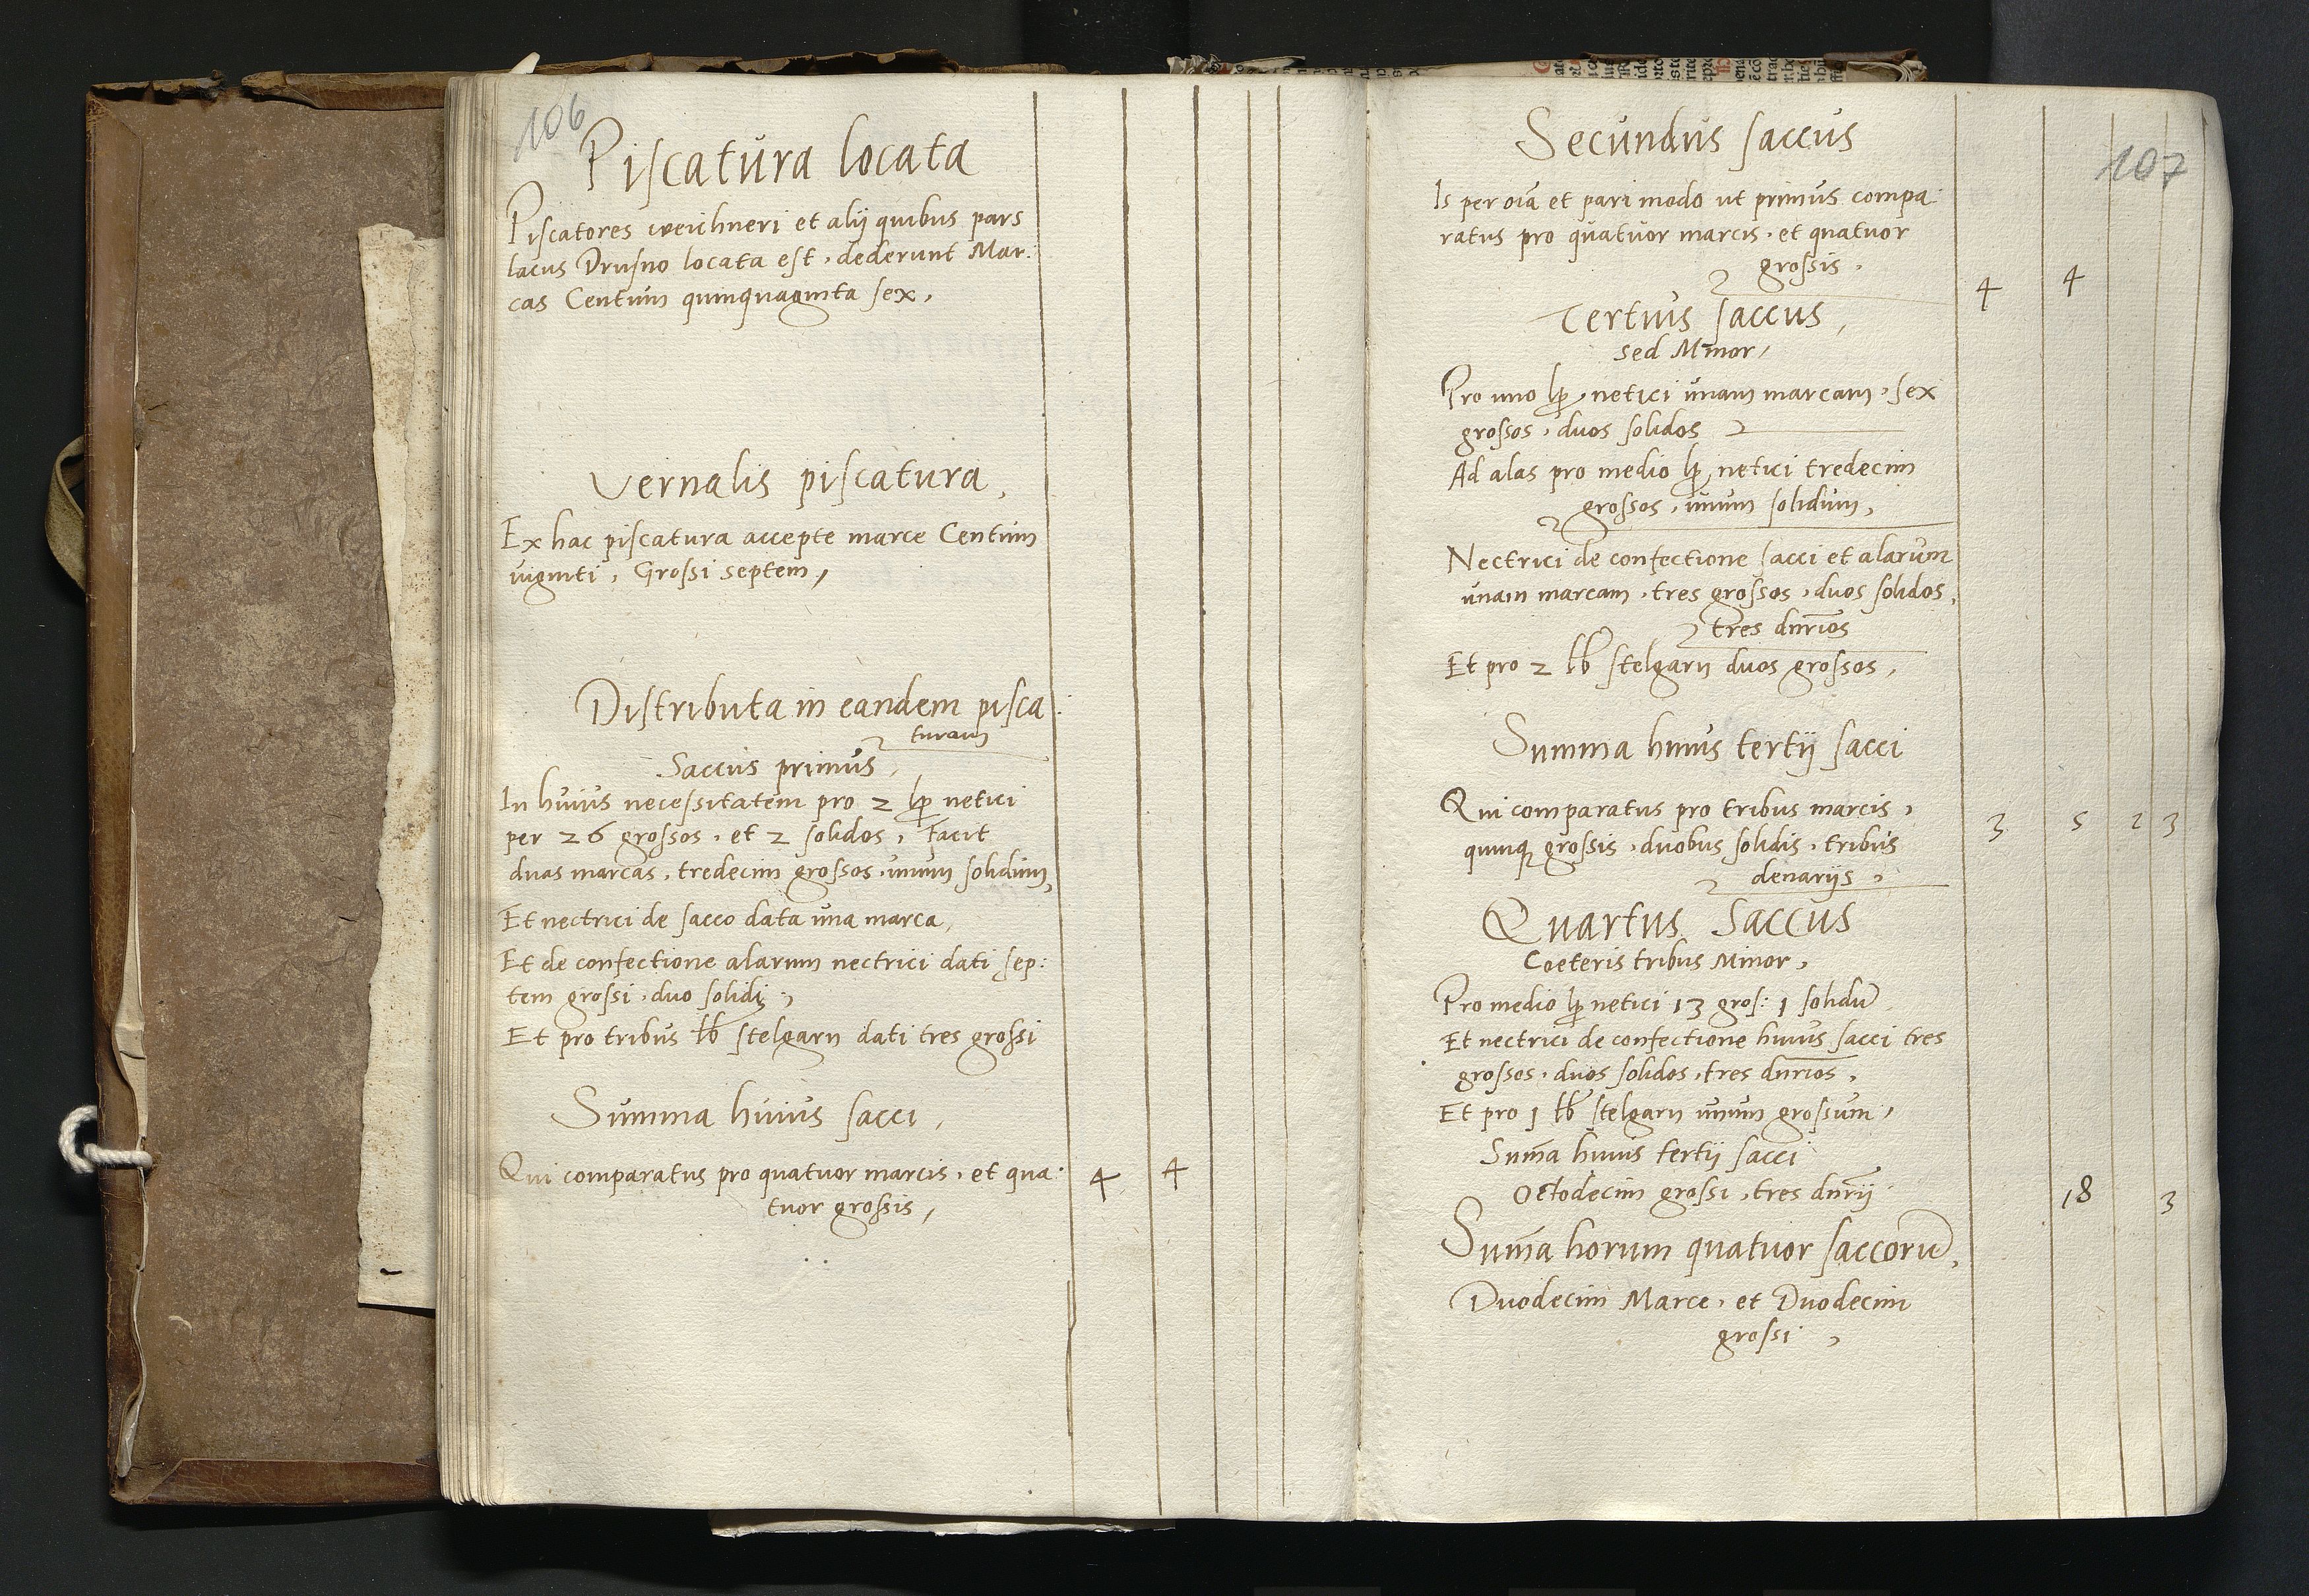 106
Piscatura locata
Piscatores weichneri et alij quibus pars
lacus Drusno locata est, dederunt Mar:
cas Centum quinquaginta sex,
Vernalis piscatura,
Ex hac piscatura accepte marce Centum
viginti, Grossi septem,
Distributa in eandem pisca:
turam
Saccus primus,
In huius necessitatem pro 2 lp netici
per 26 grossos, et 2 solidos, Facit
duas marcas, tredecim grossos, unum solidum,
Et nectrici de sacco data una marca,
Et de confectione alarum nectrici dati sep:
tem grossi, duo solidi,
Et pro tribus lb stelgarn dati tres grossi
Summa huius sacci,
Qui comparatus pro quatuor marcis, et qua: 4 4
tuor grossis,
107
Secundus saccus
Is per oīa et pari modo ut primus compa:
ratus pro quatuor marcis, et quatuor
grossis, 4 4
Tertius saccus,
sed Minor,
Pro uno lp, netici unam marcam, sex
grossos, duos solidos
Ad alas pro medio lp, netici tredecim
grossos, unum solidum,
Nectrici de confectione sacci et alarum
unam marcam, tres grossos, duos solidos,
tres dnrios
Et pro 2 lb stelgarn duos grossos,
Summa huius tertij sacci
Qui comparatus pro tribus marcis, 3 5 2 3
quinq grossis, duobus solidis, tribus
denarijs,
Quartus Saccus
Coeteris tribus Minor,
Pro medio lp netici 13 gros: 1 solidū
Et nectrici de confectione huius sacci tres
grossos, duos solidos, tres dnrios,
Et pro 1 lb stelgarn unum grossum,
Sum̄a huius tertij sacci
Octodecim grossi, tres dnrij 18 3
Sum̄a horum quatuor saccorū,
Duodecim Marce, et Duodecim
grossi,